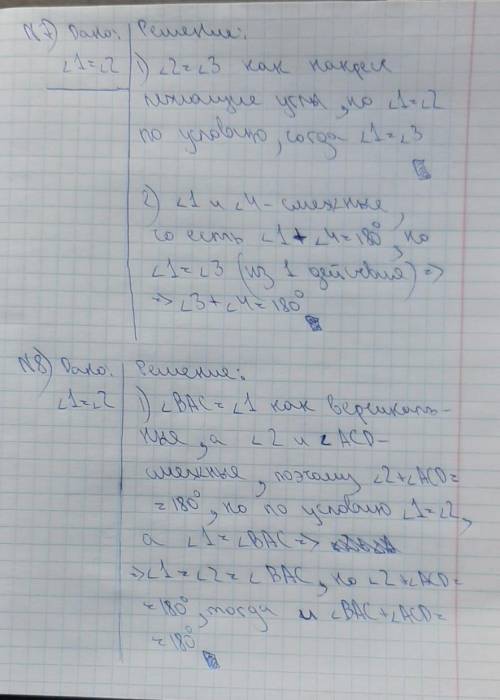 N7) Дано: Решение:
∠1=∠2 1) ∠2=∠3 как накрест
лежащие углы, но ∠1=∠2
по условию, тогда ∠1=∠3
2) ∠1 и ∠4 - смежные,
то есть ∠1+∠4=180°, но
∠1=∠3 (из 1 действия) =>
=> ∠3+∠4=180°
N8) Дано: Решение:
∠1=∠2 1) ∠BAC=∠1 как вертикаль-
ные, а ∠2 и ∠ACD-
смежные, поэтому ∠2+∠ACD=
=180°, но по условию ∠1=∠2,
а ∠1=∠BAC=>
=>∠1=∠2=∠BAC, но ∠2+∠ACD=
=180°, тогда и ∠BAC+∠ACD=
=180°